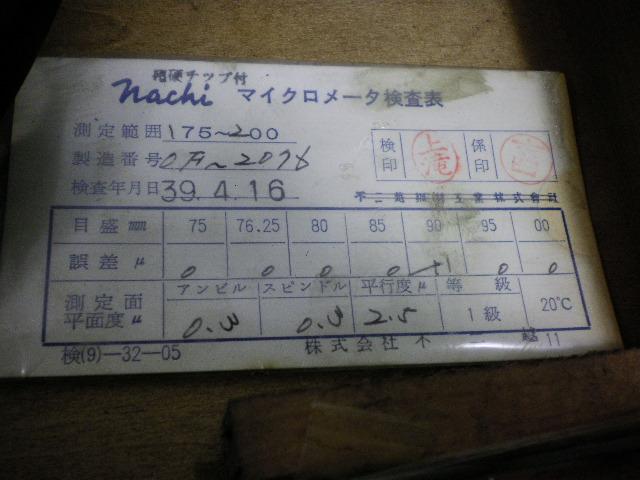 超硬チップ付
nachi マイクロメータ検査表
測定範囲 175~200
製造番号
検査年月日 39.4.16
検印 上滝 係印
株式会社
目盛 mm 75 76.25 80 85 90 95 00
誤差 μ 0 0 0 0 +1 0 0
測定面平面度 μ アンビル スピンドル 平行度μ 等級 20℃
0.3 0.3 2.5 1級
検(9)—32—05 株式会社不二越 11